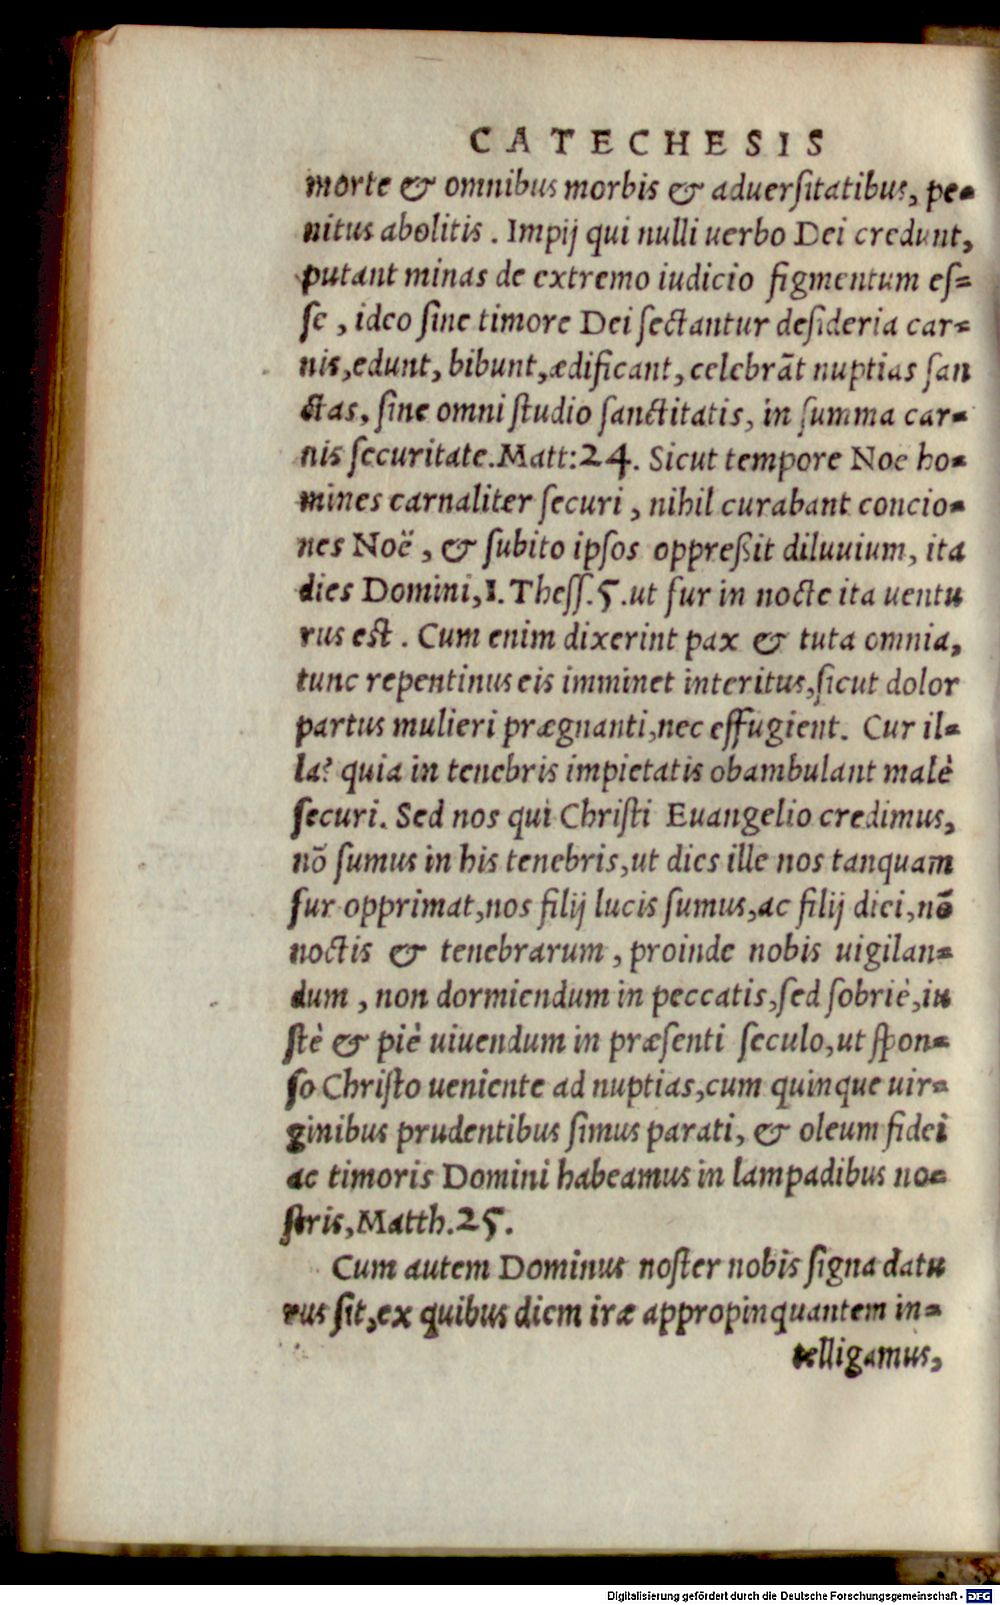 CATECHESIS
morte & omnibus morbis & aduerſitatibus, pe=
nitus abolitis . Impij qui nulli uerbo Dei credunt,
putant minas de extremo iudicio figmentum eſ=
ſe , ideo ſine timore Dei ſectantur deſideria car=
nis,edunt, bibunt,ædificant, celebrãt nuptias ſan
ctas, ſine omni ſtudio ſanctitatis, in ſumma car=
nis ſecuritate.Matt:24. Sicut tempore Noe ho=
mines carnaliter ſecuri , nihil curabant concio=
nes Noë , & ſubito ipſos oppreßit diluuium, ita
dies Domini,1. Theſſ.5.ut fur in nocte ita uentu
rus est . Cum enim dixerint pax & tuta omnia,
tunc repentinus eis imminet interitus,ſicut dolor
partus mulieri prægnanti,nec effugient. Cur il=
la? quia in tenebris impietatis obambulant malè
ſecuri. Sed nos qui Chriſti Euangelio credimus,
nõ ſumus in his tenebris,ut dies ille nos tanquam
fur opprimat,nos filij lucis ſumus,ac filij diei,nõ
noctis & tenebrarum , proinde nobis uigilan=
dum , non dormiendum in peccatis,ſed ſobriè,iu
ſtè & piè uiuendum in præſenti ſeculo,ut ſpon=
ſo Chriſto ueniente ad nuptias,cum quinque uir=
ginibus prudentibus ſimus parati, & oleum fidei
ac timoris Domini habeamus in lampadibus no=
ſtris,Matth.25.
Cum autem Dominus noſter nobis ſigna datu
rus ſit,ex quibus diem iræ appropinquantem in=
telligamus,
Digitalisierung gefördert durch die Deutsche Forschungsgemeinschaft - DFG